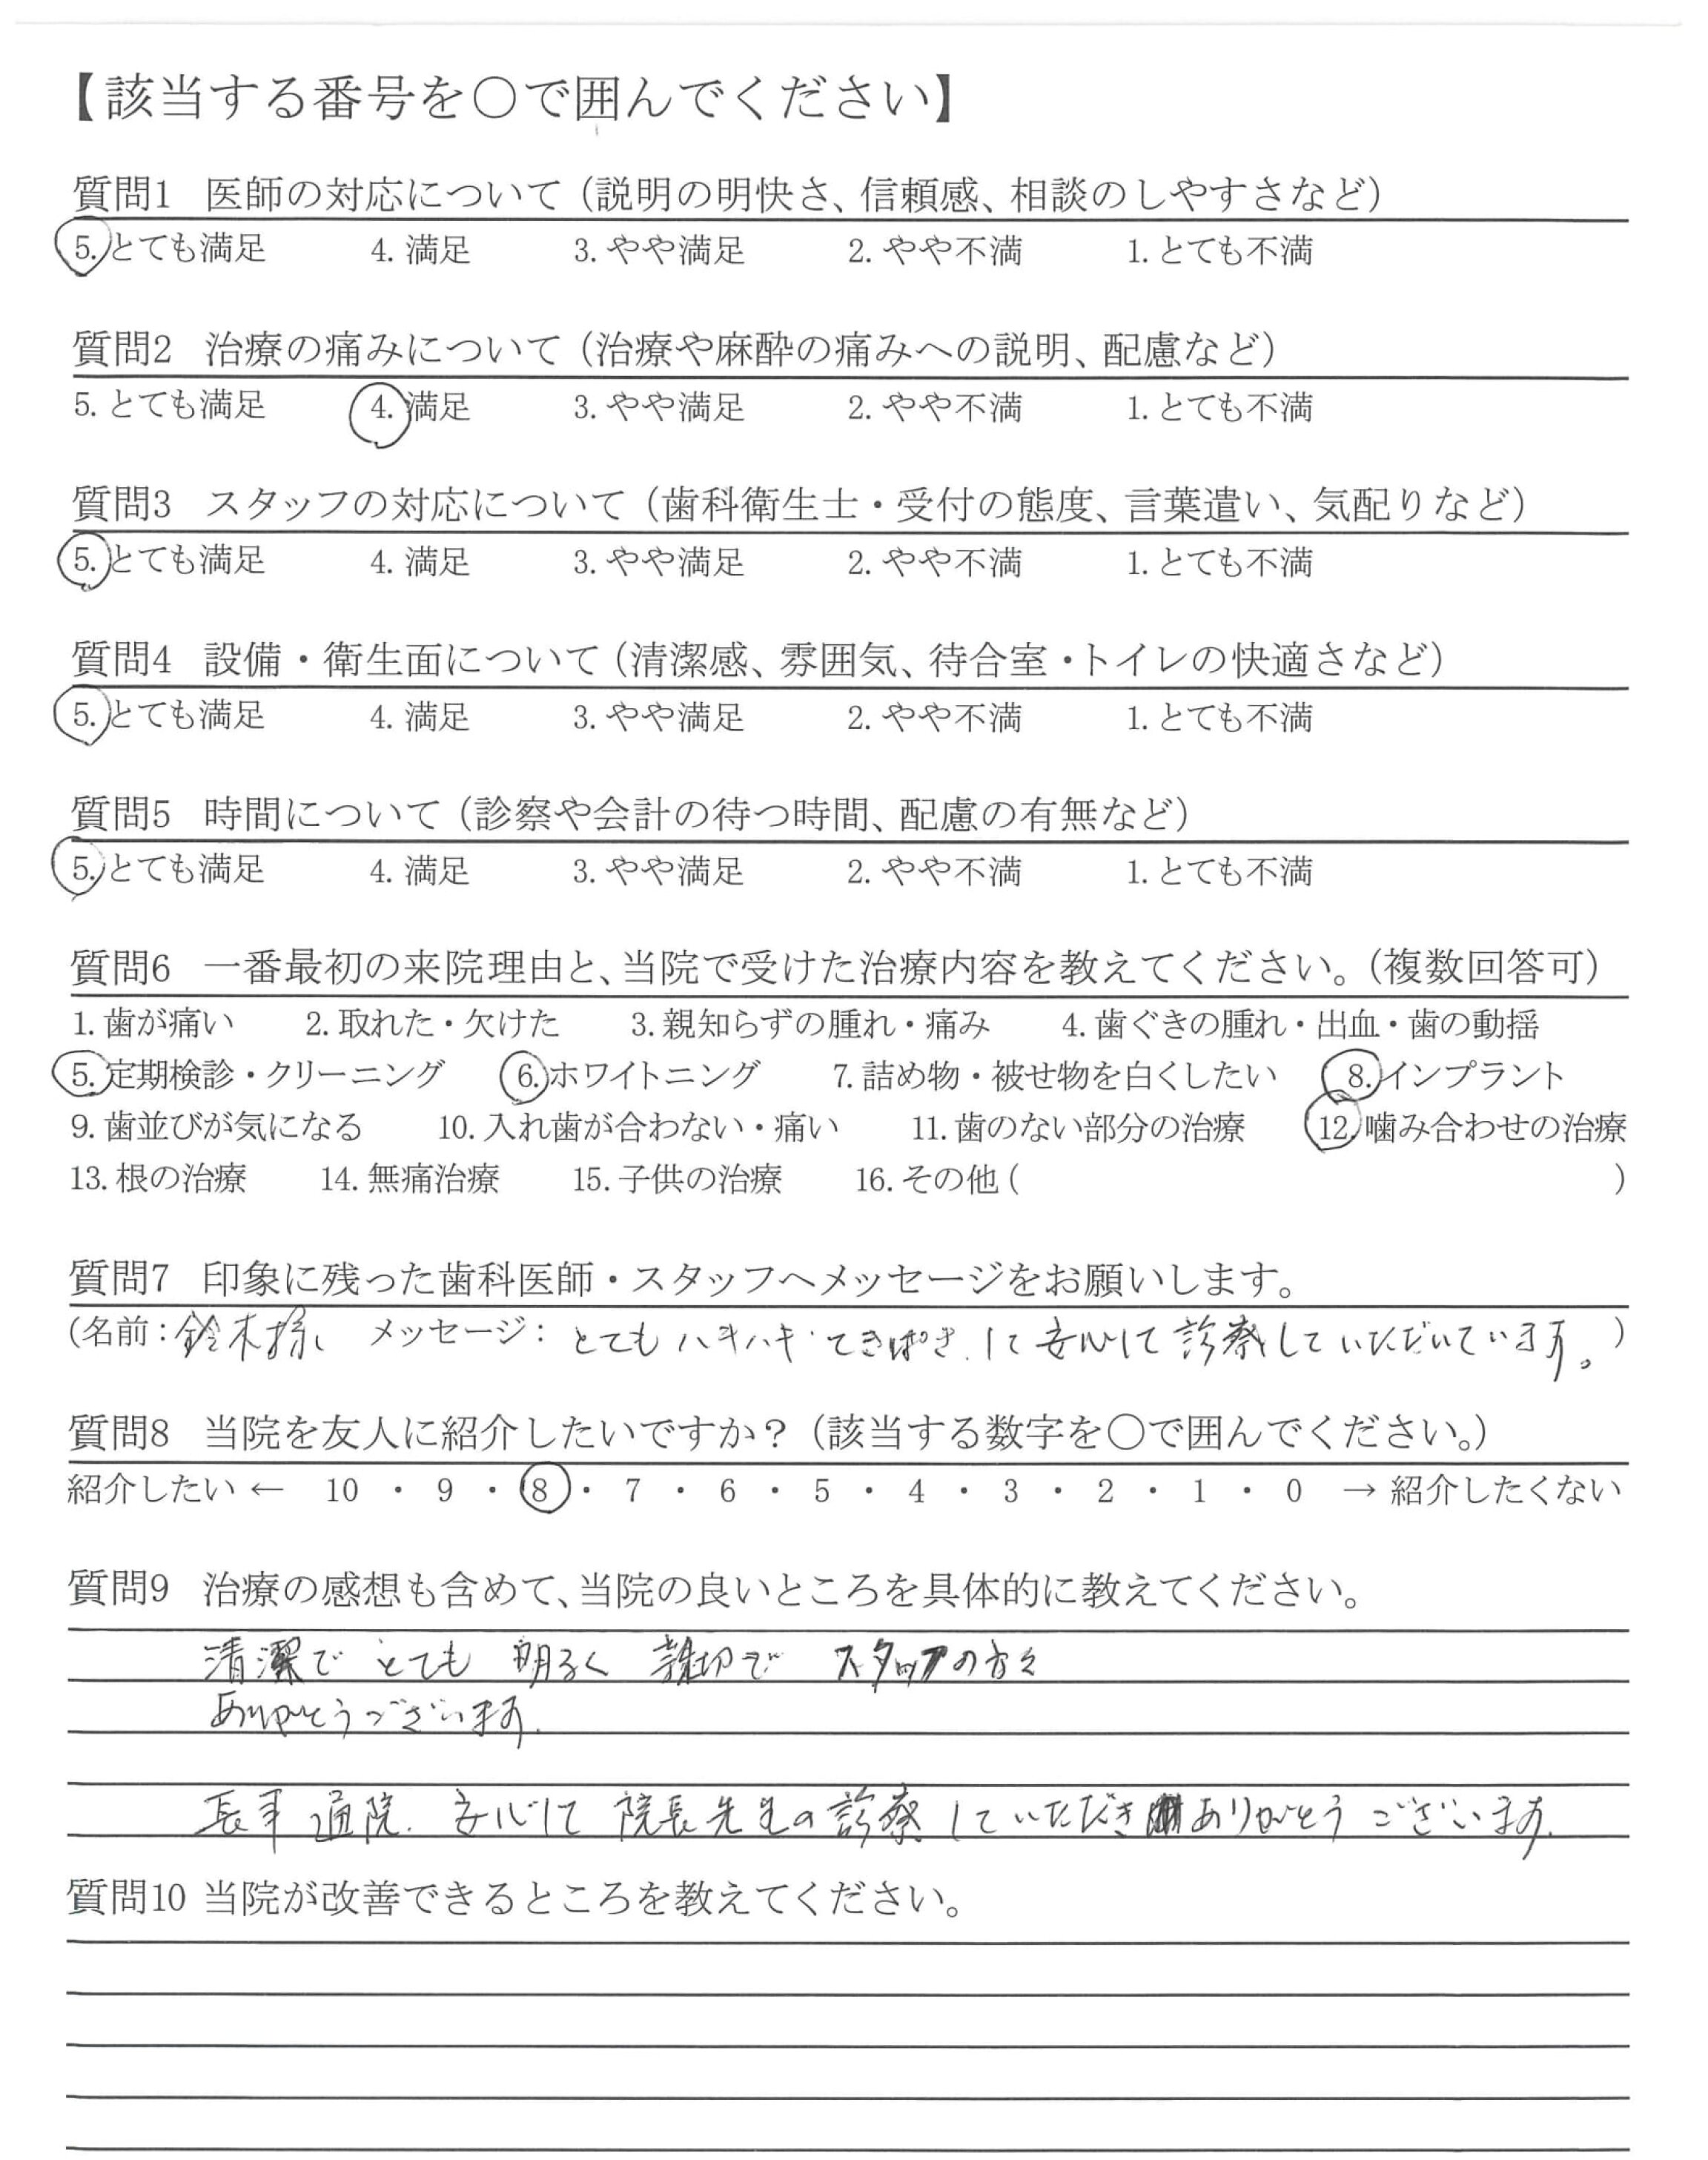 【該当する番号を○で囲んでください】
質問1 医師の対応について（説明の明快さ、信頼感、相談のしやすさなど）
5. とても満足 4. 満足 3. やや満足 2. やや不満 1. とても不満
質問2 治療の痛みについて（治療や麻酔の痛みへの説明、配慮など）
5. とても満足 4. 満足 3. やや満足 2. やや不満 1. とても不満
質問3 スタッフの対応について（歯科衛生士・受付の態度、言葉遣い、気配りなど）
5. とても満足 4. 満足 3. やや満足 2. やや不満 1. とても不満
質問4 設備・衛生面について（清潔感、雰囲気、待合室・トイレの快適さなど）
5. とても満足 4. 満足 3. やや満足 2. やや不満 1. とても不満
質問5 時間について（診察や会計の待つ時間、配慮の有無など）
5. とても満足 4. 満足 3. やや満足 2. やや不満 1. とても不満
質問6 一番最初の来院理由と、当院で受けた治療内容を教えてください。（複数回答可）
1. 歯が痛い 2. 取れた・欠けた 3. 親知らずの腫れ・痛み 4. 歯ぐきの腫れ・出血・歯の動揺
5. 定期検診・クリーニング 6. ホワイトニング 7. 詰め物・被せ物を白くしたい 8. インプラント
9. 歯並びが気になる 10. 入れ歯が合わない・痛い 11. 歯のない部分の治療 12. 噛み合わせの治療
13. 根の治療 14. 無痛治療 15. 子供の治療 16. その他（ ）
質問7 印象に残った歯科医師・スタッフへメッセージをお願いします。
（名前：鈴木様 メッセージ：とてもハキハキ・てきぱき、して安心して診察していただいています。）
質問8 当院を友人に紹介したいですか？（該当する数字を○で囲んでください。）
紹介したい ← 10 ・ 9 ・ 8 ・ 7 ・ 6 ・ 5 ・ 4 ・ 3 ・ 2 ・ 1 ・ 0 → 紹介したくない
質問9 治療の感想も含めて、当院の良いところを具体的に教えてください。
清潔で とても 明るく 親切で スタッフの方々
ありがとうございます。
長年 通院、安心して 院長先生の診察 していただきありがとうございます。
質問10 当院が改善できるところを教えてください。